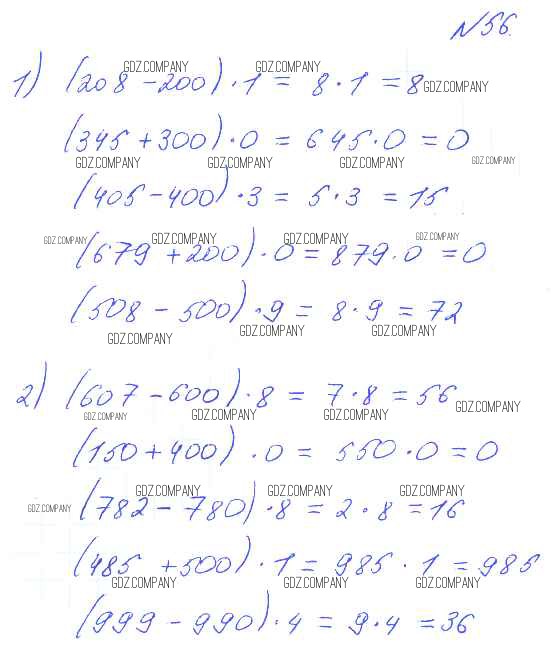 №56.
1) (208 - 200) · 1 = 8 · 1 = 8
(345 + 300) · 0 = 645 · 0 = 0
(405 - 400) · 3 = 5 · 3 = 15
(679 + 200) · 0 = 879 · 0 = 0
(508 - 500) · 9 = 8 · 9 = 72
2) (607 - 600) · 8 = 7 · 8 = 56
(150 + 400) · 0 = 550 · 0 = 0
(782 - 780) · 8 = 2 · 8 = 16
(485 + 500) · 1 = 985 · 1 = 985
(999 - 990) · 4 = 9 · 4 = 36
GDZ.COMPANY GDZ.COMPANY
GDZ.COMPANY
GDZ.COMPANY GDZ.COMPANY GDZ.COMPANY GDZ.COMPANY
GDZ.COMPANY GDZ.COMPANY GDZ.COMPANY GDZ.COMPANY
GDZ.COMPANY GDZ.COMPANY GDZ.COMPANY
GDZ.COMPANY GDZ.COMPANY GDZ.COMPANY GDZ.COMPANY
GDZ.COMPANY GDZ.COMPANY GDZ.COMPANY GDZ.COMPANY
GDZ.COMPANY GDZ.COMPANY GDZ.COMPANY